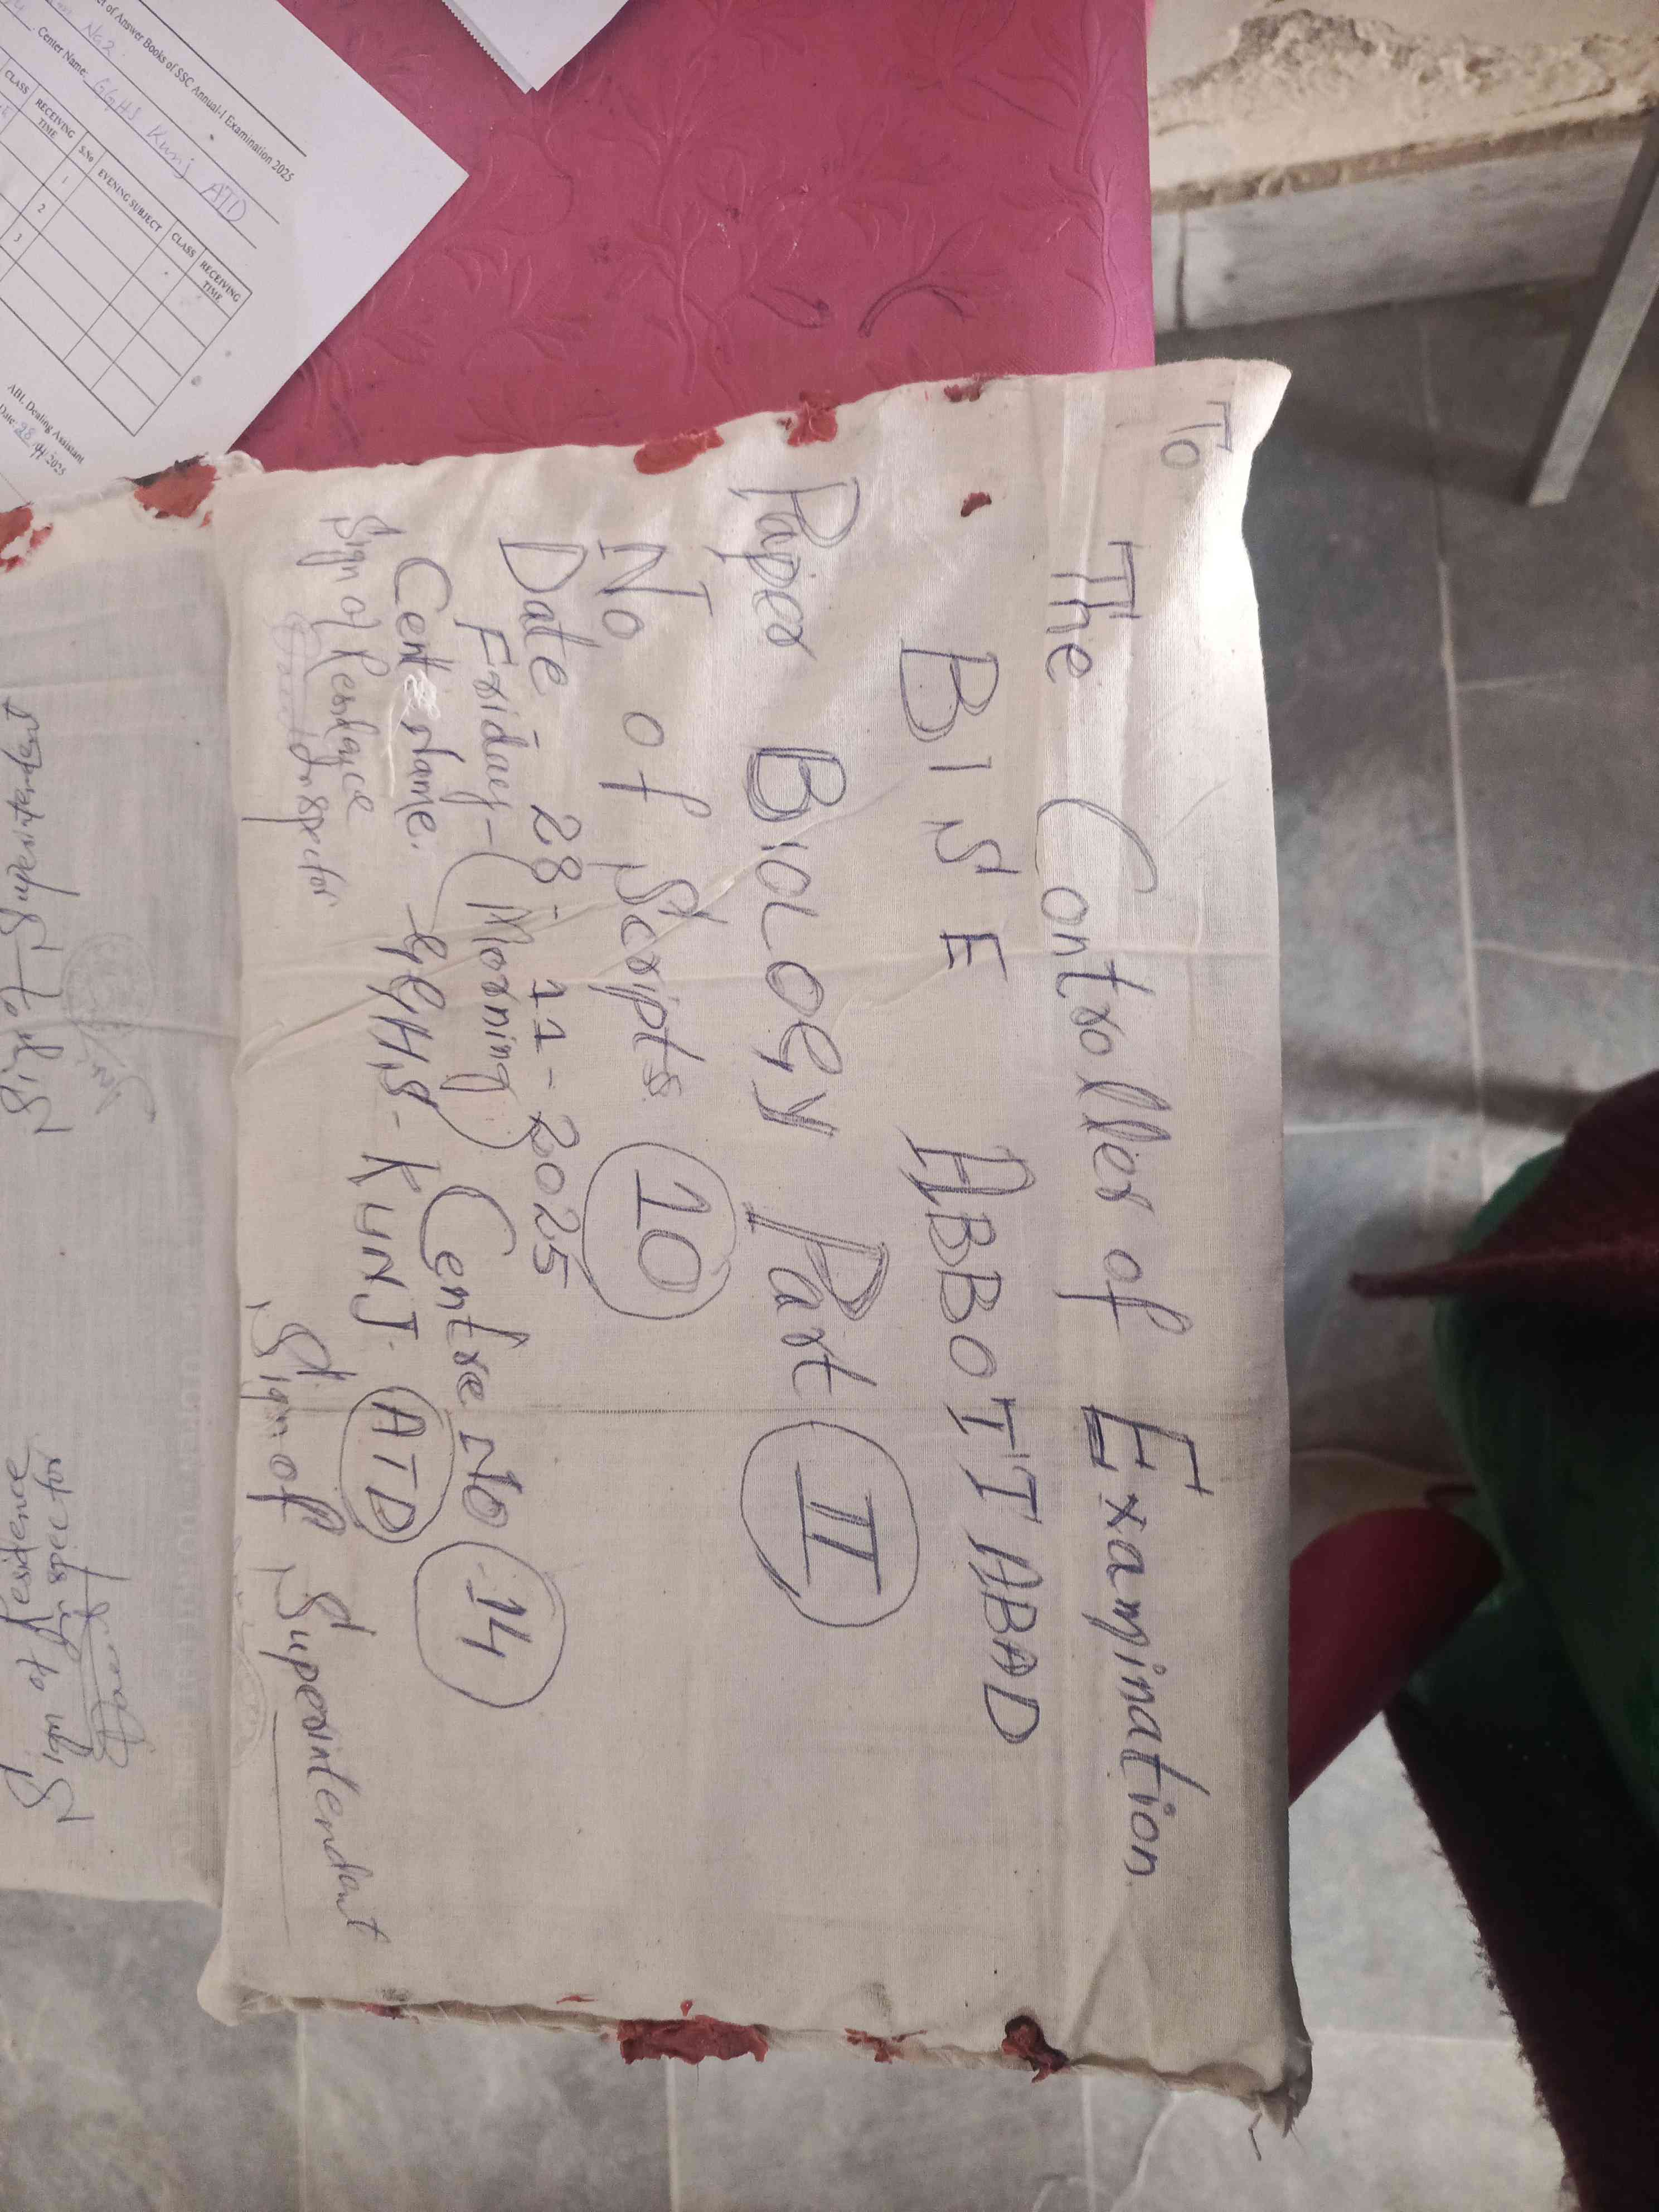 To
The Controller of Examination
BISE ABBOTTABAD
Paper Biology Part II
No of Scripts 10
Date - 28-11-2025
Friday - (Morning) Centre No 14
Center Name. GGHS-KUNJ. ATD
Sign of Residence
Inspector
Sign of Superintendent
Sign of Superintendent
Sign of Residence
Inspector
Sign
of Answer Books of SSC Annual-I Examination 2025
No2
Center Name: GGHS Kunj ATD
CLASS RECEIVING TIME S.No EVENING SUBJECT CLASS RECEIVING TIME
1
2
3
ABL Dealing Assistant
Date: 28/11/2025